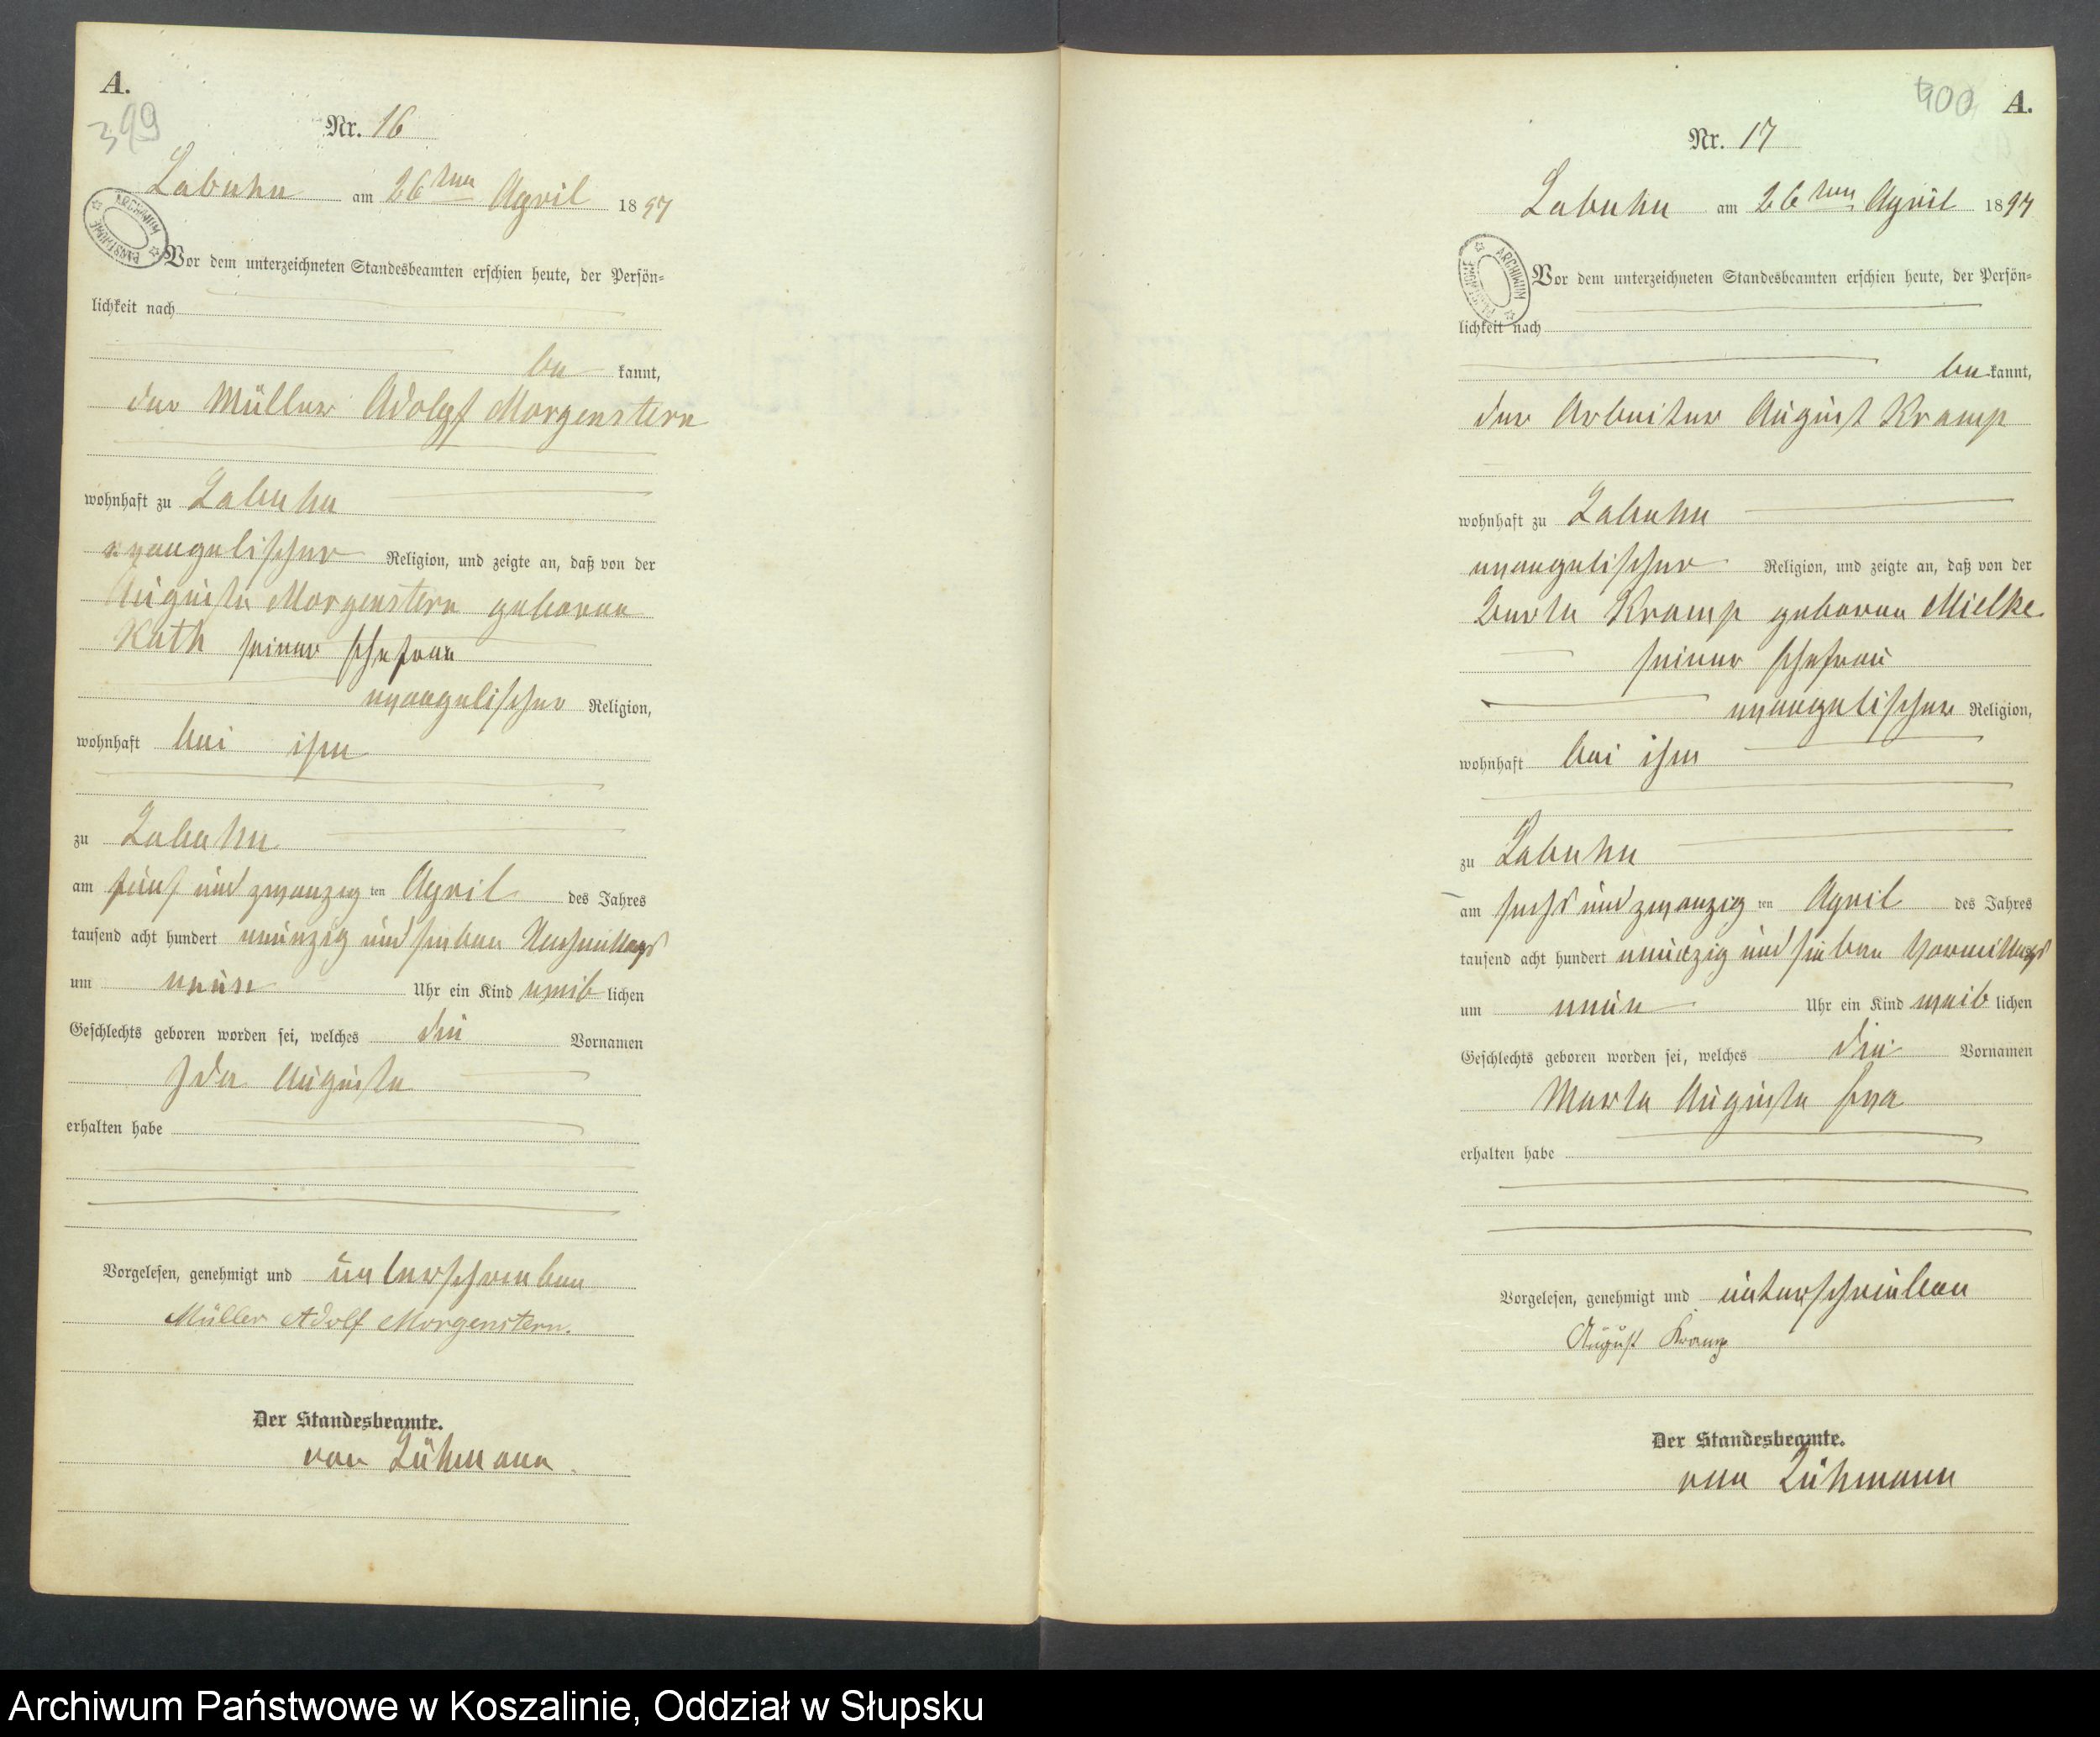 A.
399
Nr. 16
Labuhn am 26ten April 1897
Vor dem unterzeichneten Standesbeamten erschien heute, der Persön-
lichkeit nach
be kannt,
der Müller Adolf Morgenstern
wohnhaft zu Labuhn
evangelischer Religion, und zeigte an, daß von der
Auguste Morgenstern geborene
Kath seiner Ehefrau
evangelischer Religion,
wohnhaft bei ihm
zu Labuhn
am fünf und zwanzig ten April des Jahres
tausend acht hundert neunzig und sieben Nachmittags
um neun Uhr ein Kind weib lichen
Geschlechts geboren worden sei, welches die Vornamen
Ida Auguste
erhalten habe
Vorgelesen, genehmigt und unterschrieben
Müller Adolf Morgenstern.
Der Standesbeamte.
von Lühmann.
ARCHIWUM PAŃSTWOWE
400
A.
Nr. 17
Labuhn am 26ten April 1897
Vor dem unterzeichneten Standesbeamten erschien heute, der Persön-
lichkeit nach
be kannt,
der Arbeiter August Kramp
wohnhaft zu Labuhn
evangelischer Religion, und zeigte an, daß von der
Berta Kramp geborene Mielke
seiner Ehefrau
evangelischer Religion,
wohnhaft bei ihm
zu Labuhn
am sechs und zwanzig ten April des Jahres
tausend acht hundert neunzig und sieben Vormittags
um neun Uhr ein Kind weib lichen
Geschlechts geboren worden sei, welches die Vornamen
Marta Auguste Eva
erhalten habe
Vorgelesen, genehmigt und unterschrieben
August Kramp
Der Standesbeamte.
von Lühmann
ARCHIWUM PAŃSTWOWE
Archiwum Państwowe w Koszalinie, Oddział w Słupsku